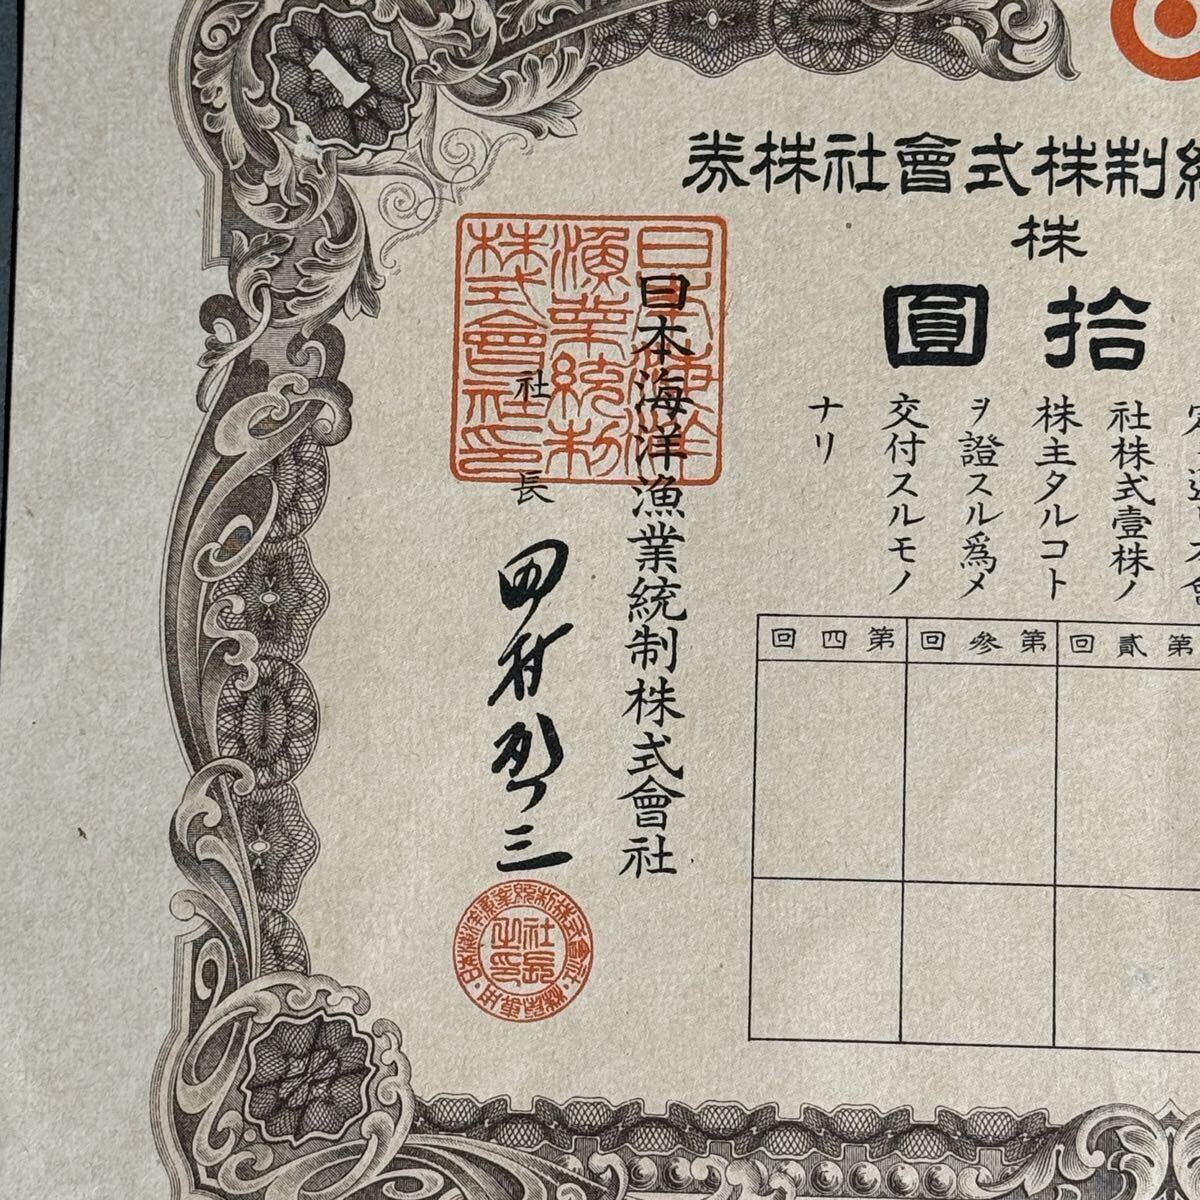 制株式會社株券
株
拾圓
社株式壹株ノ
株主タルコト
ヲ證スル爲メ
交付スルモノ
ナリ
第貳回
第參回
第四回
日本海洋漁業統制株式會社
社長
田村啓三
日本海洋漁業統制株式會社印
社長之印